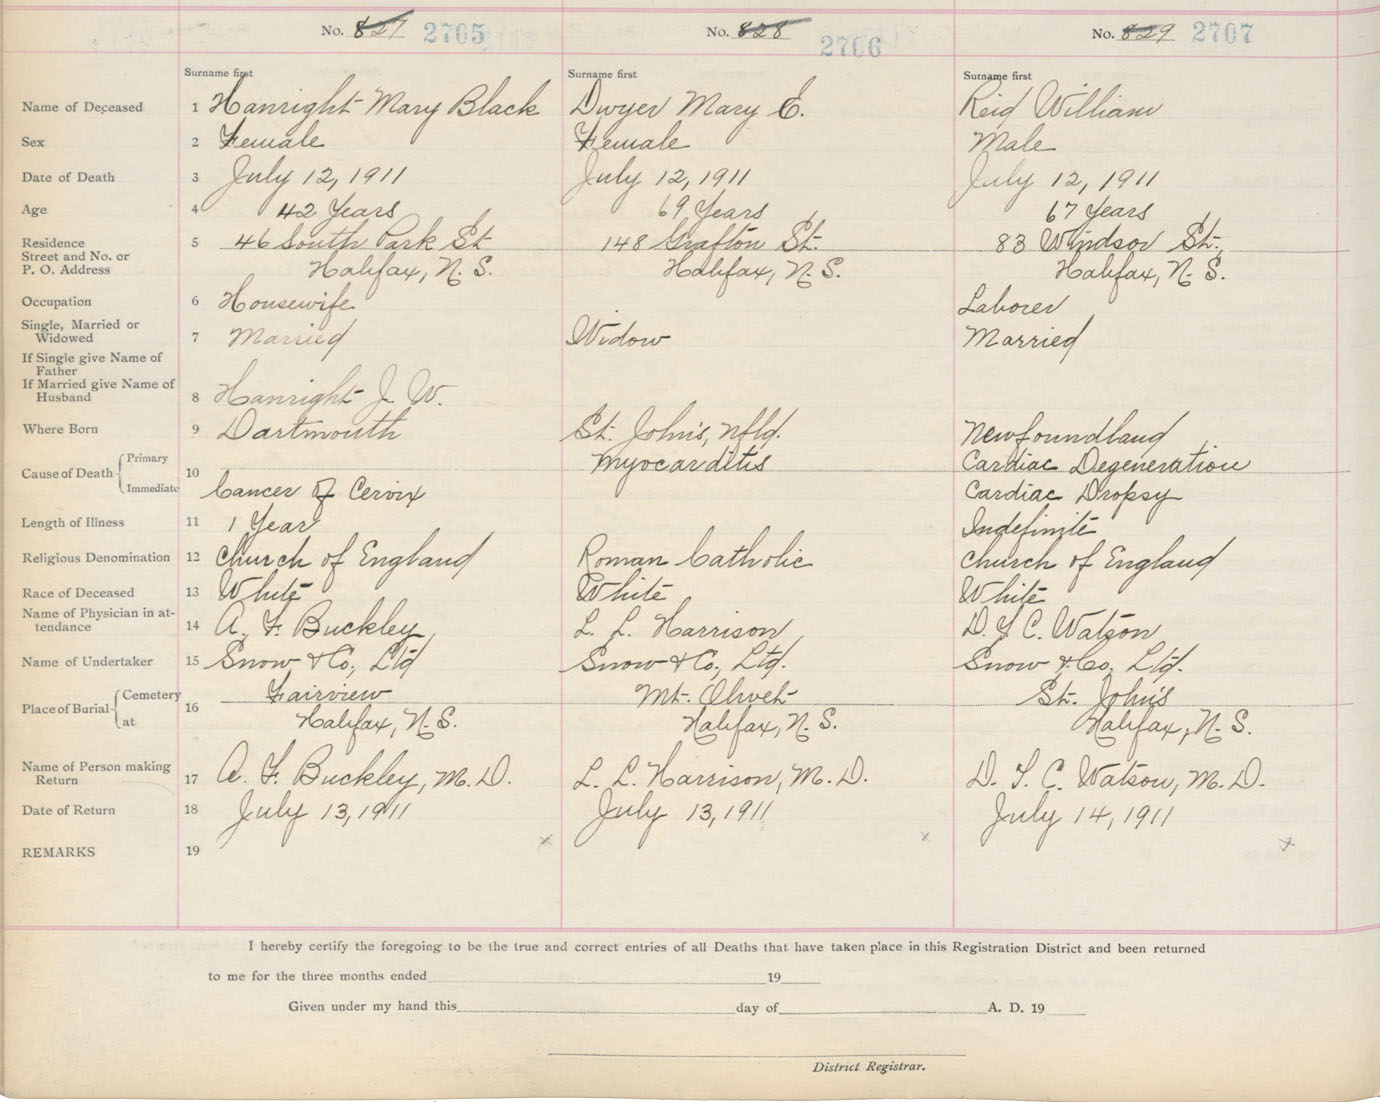 No. 827 2705 No. 828 2706 No. 829 2707
Surname first Surname first Surname first
Name of Deceased 1 Hanright Mary Black Dwyer Mary E. Reid William
Sex 2 Female Female Male
Date of Death 3 July 12, 1911 July 12, 1911 July 12, 1911
Age 4 42 Years 69 Years 67 Years
Residence 5 46 South Park St 148 Grafton St. 83 Windsor St.,
Street and No. or
P. O. Address Halifax, N. S. Halifax, N. S. Halifax, N. S.
Occupation 6 Housewife Laborer
Single, Married or
Widowed 7 Married Widow Married
If Single give Name of
Father
If Married give Name of
Husband 8 Hanright J. W.
Where Born 9 Dartmouth St. John's, Nfld. Newfoundland
Cause of Death Primary 10 Myocarditis Cardiac Degeneration
Immediate Cancer of Cervix Cardiac Dropsy
Length of Illness 11 1 Year Indefinite
Religious Denomination 12 Church of England Roman Catholic Church of England
Race of Deceased 13 White White White
Name of Physician in at-
tendance 14 A. F. Buckley L. L. Harrison D. F. C. Watson
Name of Undertaker 15 Snow & Co, Ltd Snow & Co, Ltd. Snow & Co, Ltd.
Place of Burial Cemetery 16 Fairview Mt. Olivet St. John's
at Halifax, N. S. Halifax, N. S. Halifax, N. S.
Name of Person making
Return 17 A. F. Buckley, M. D. L. L. Harrison, M. D. D. F. C. Watson, M. D.
Date of Return 18 July 13, 1911 July 13, 1911 July 14, 1911
REMARKS 19 x x x
I hereby certify the foregoing to be the true and correct entries of all Deaths that have taken place in this Registration District and been returned
to me for the three months ended 19
Given under my hand this day of A. D. 19
District Registrar.